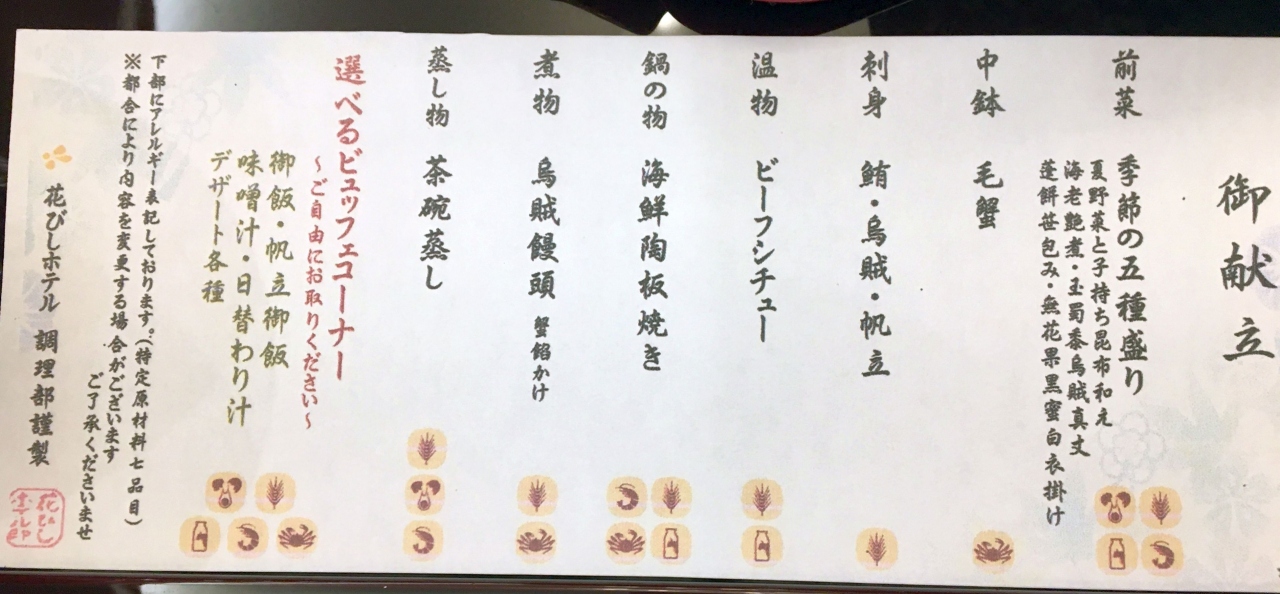 御献立
前菜 季節の五種盛り
夏野菜と子持ち昆布和え
海老艶煮・玉蜀黍烏賊真丈
蓬餅笹包み・無花果黒蜜白衣掛け
中鉢 毛蟹
刺身 鮪・烏賊・帆立
温物 ビーフシチュー
鍋の物 海鮮陶板焼き
煮物 烏賊饅頭 蟹餡かけ
蒸し物 茶碗蒸し
選べるビュッフェコーナー
～ご自由にお取りください～
御飯・帆立御飯
味噌汁・日替わり汁
デザート各種
下部にアレルギー表記しております。(特定原材料七品目)
※都合により内容を変更する場合がございます
ご了承くださいませ
花びしホテル 調理部謹製
花びし
ホテル印